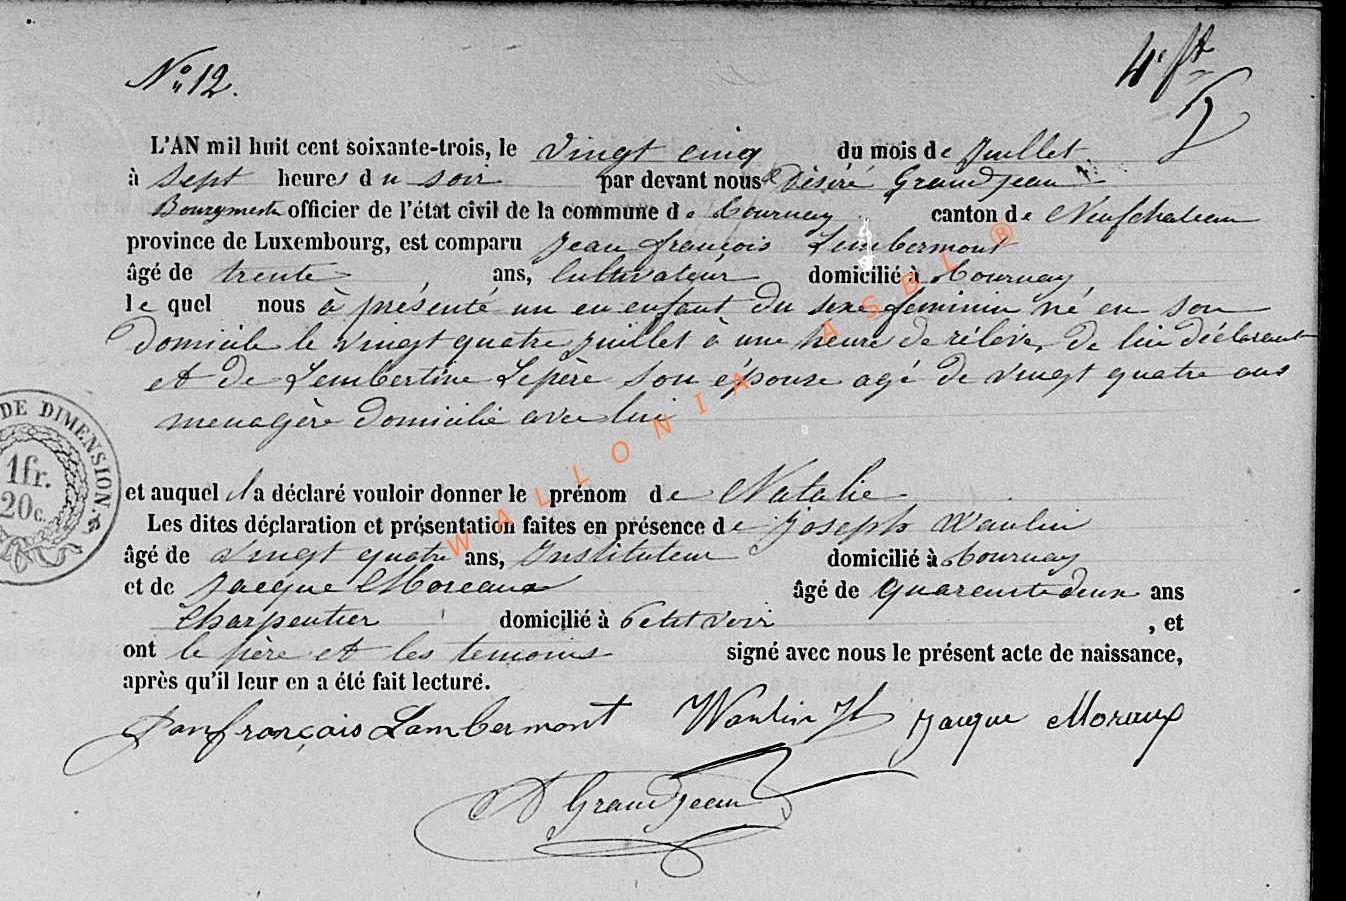 No 12.
L'AN mil huit cent soixante-trois, le vingt cinq du mois de Juillet
à Sept heures du soir par devant nous Désiré Grandjean
Bourgmestre officier de l'état civil de la commune de Tournay canton de Neufchateau
province de Luxembourg, est comparu Jean françois Lembermont
âgé de trente ans, Cultivateur domicilié à Tournay
le quel nous à présenté un en enfant du sexe feminin né en son
domicile le vingt quatre juillet à une heure de rélévé, de lui déclarant
et de Lembertine Lepère son épouse agé de vingt quatre ans
menagère domicilié avec lui
et auquel il a déclaré vouloir donner le prénom de Natalie
Les dites déclaration et présentation faites en présence de Joseph Waulin
âgé de vingt quatre ans, Instituteur domicilié à Tournay
et de Jacque Moreaux âgé de quarente deux ans
Charpentier domicilié à Petitvoir , et
ont le père et les temoins signé avec nous le présent acte de naissance,
après qu'il leur en a été fait lecture.
Jean françois Lambermont Waulin Jh Jacque Moraux
D Grandjean
DE DIMENSION.
1fr.
20c.
WALLONIA ASBL ®